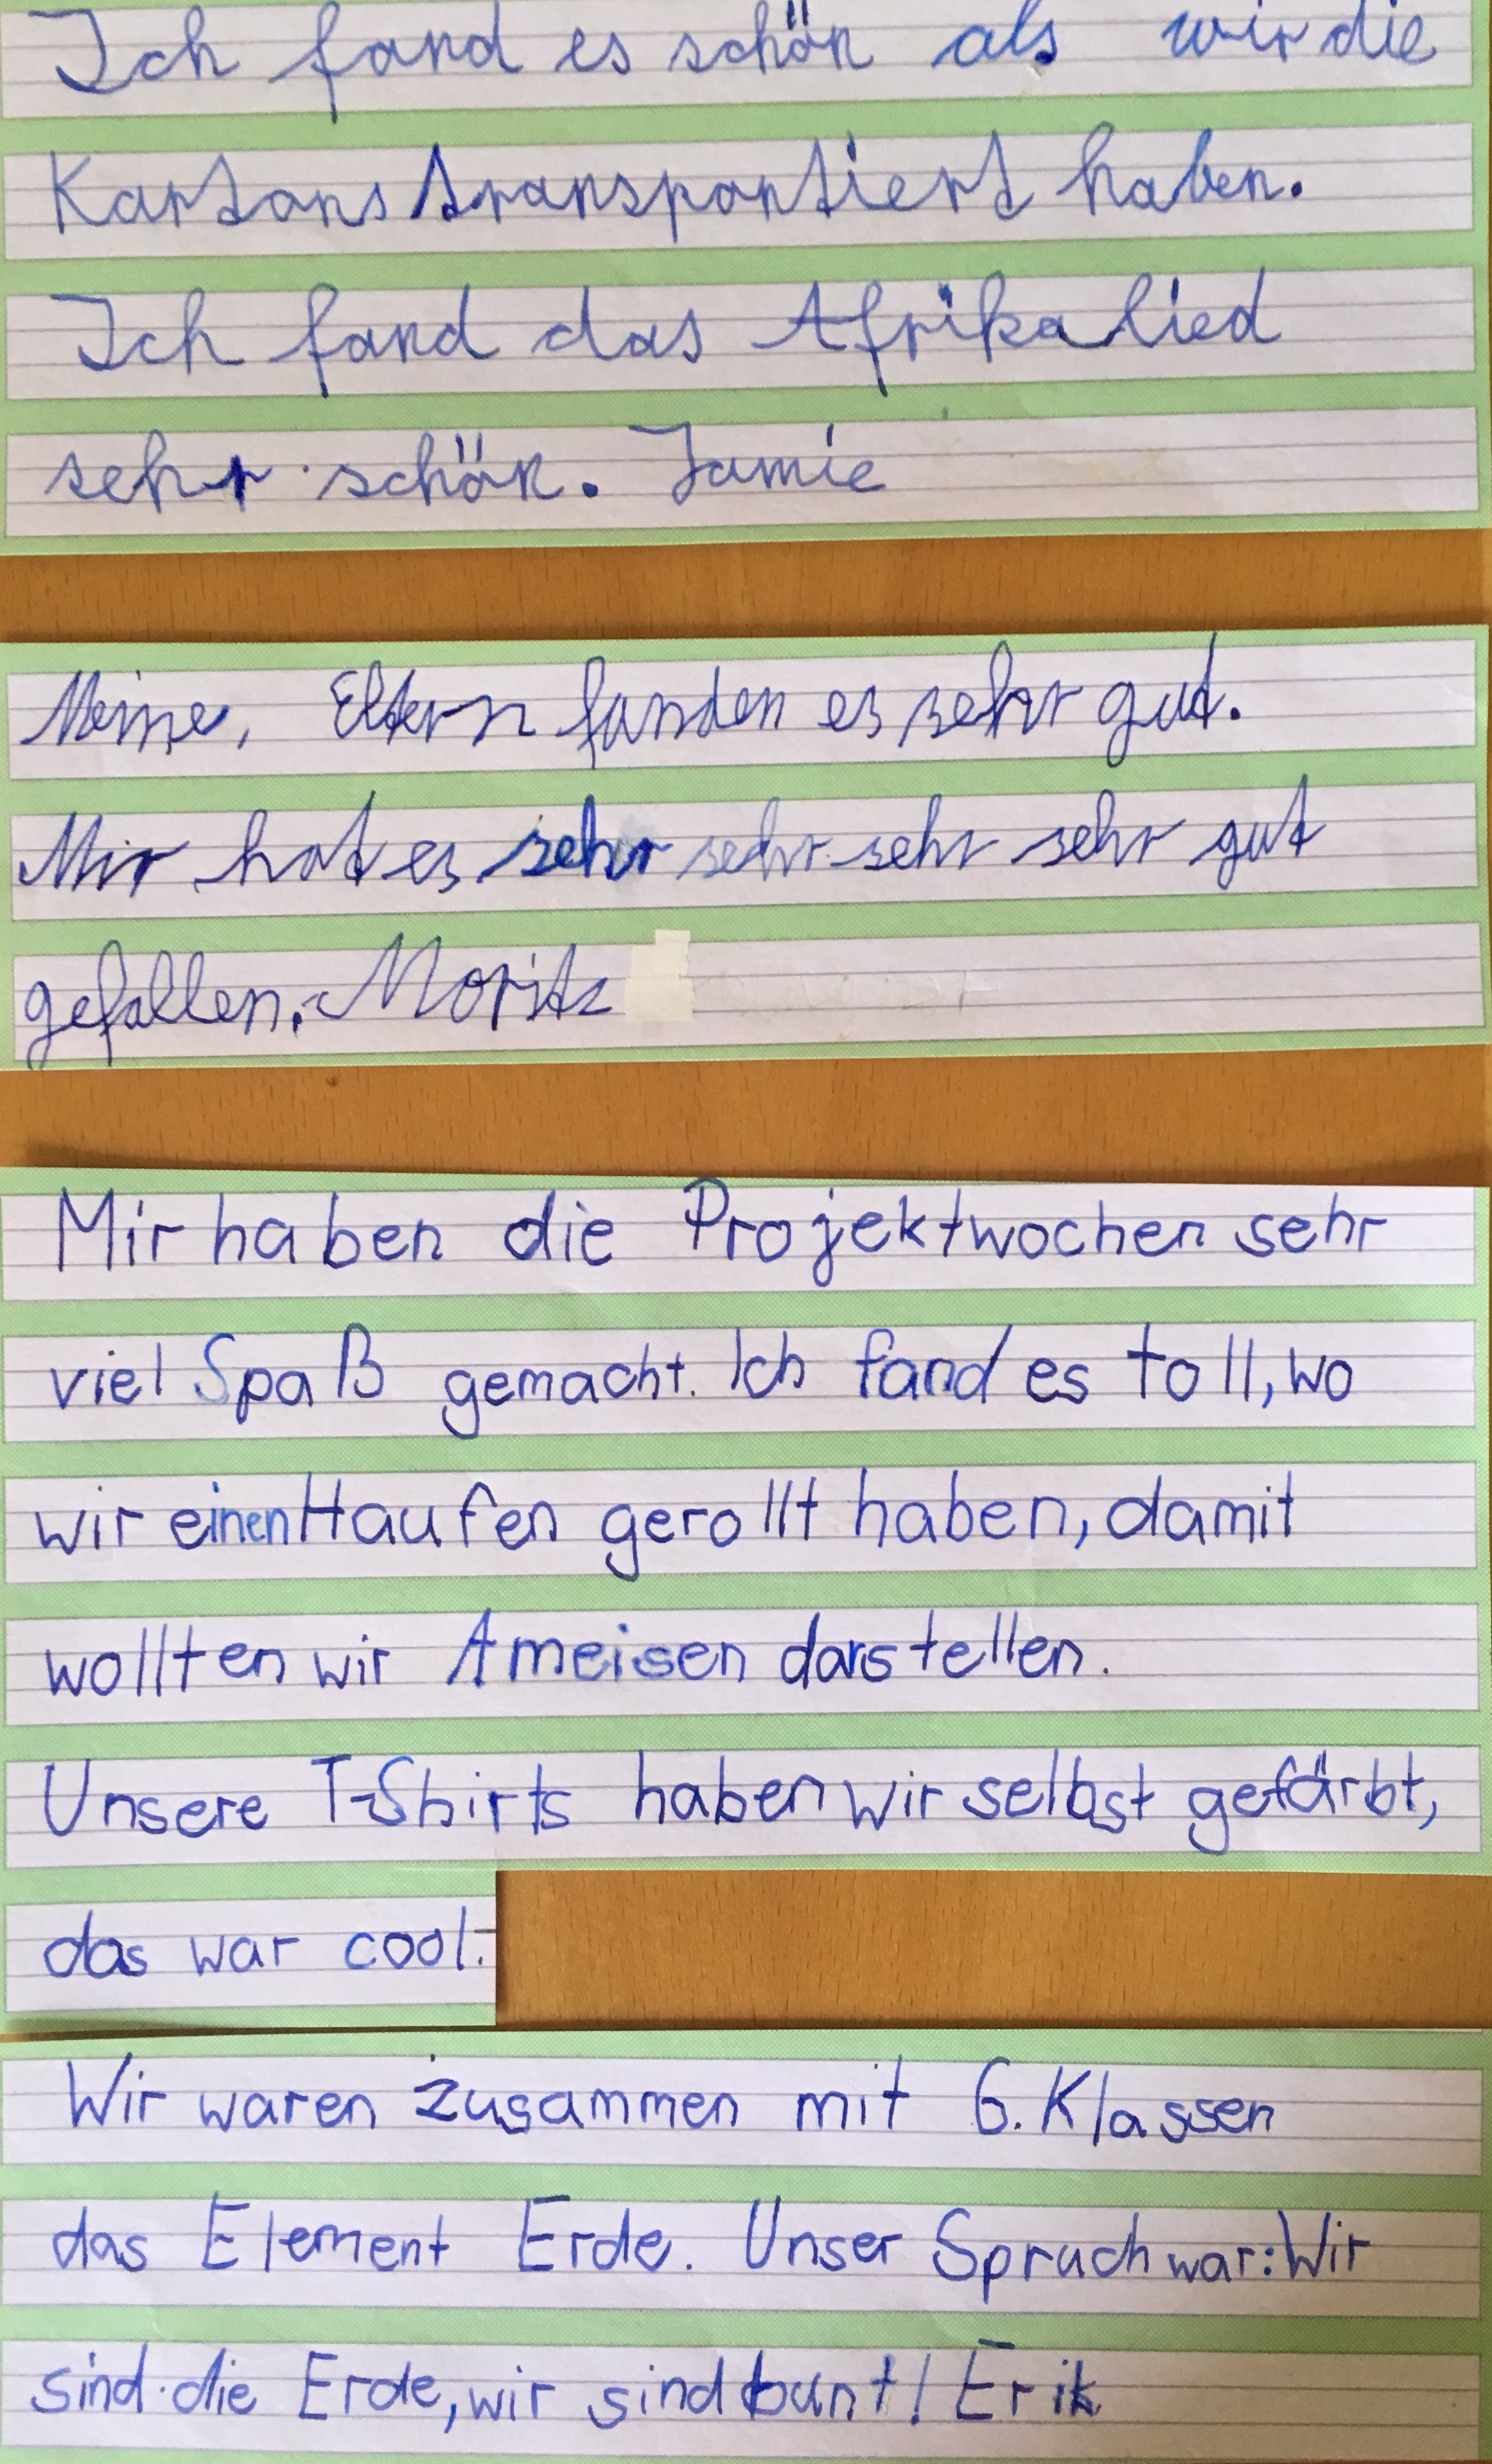 Ich fand es schön als wir die
Kartons transportiert haben.
Ich fand das Afrikalied
sehr schön. Jamie
Meine, Eltern fanden es sehr gut.
Mir hat es sehr sehr sehr sehr gut
gefallen. Moritz
Mir haben die Projektwochen sehr
viel Spaß gemacht. Ich fand es toll, wo
wir einen Haufen gerollt haben, damit
wollten wir Ameisen darstellen.
Unsere T-Shirts haben wir selbst gefärbt,
das war cool.
Wir waren zusammen mit 6. Klassen
das Element Erde. Unser Spruch war: Wir
sind die Erde, wir sind bunt! Erik